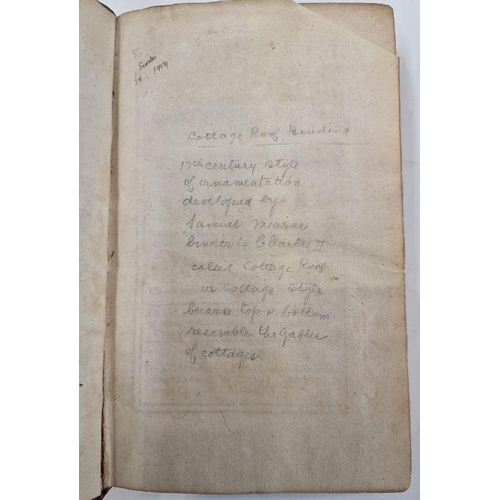 Cottage Roof Binding
17th century style
of ornamentation
developed by
Samuel Mearne
binder to Charles II
called Cottage Roof
or cottage style
because top & bottom
resemble the gables
of cottages